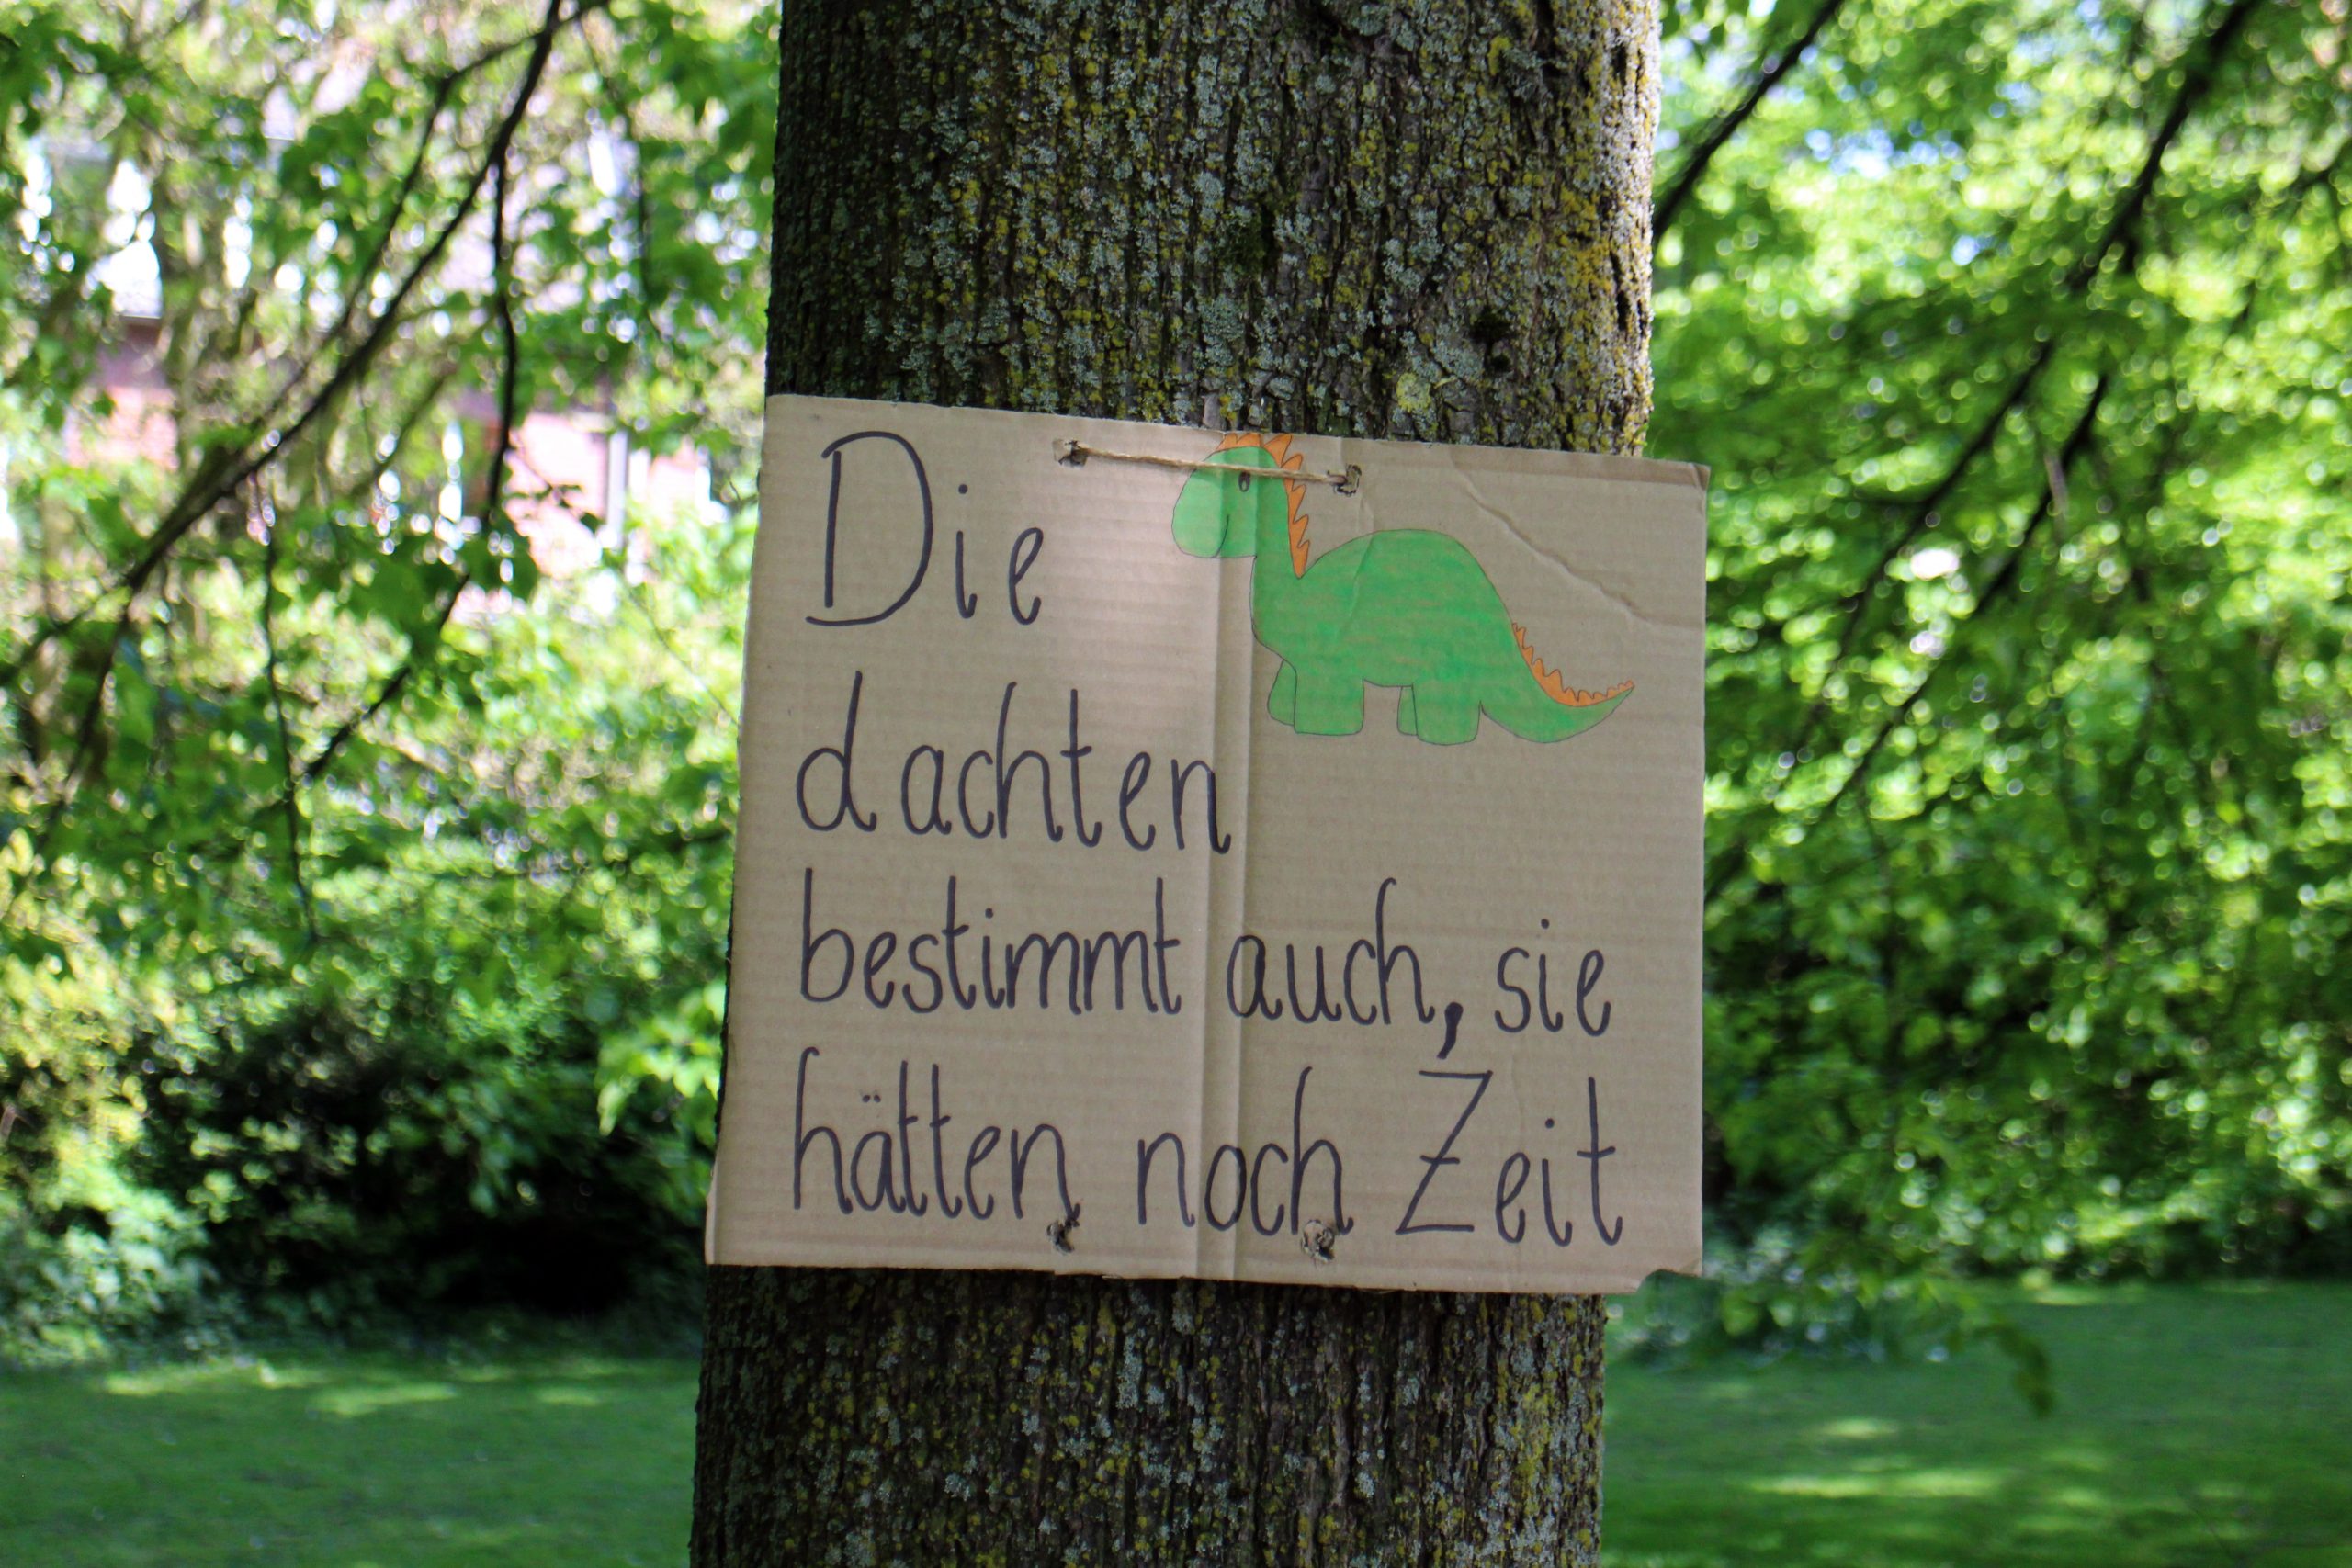 Die
dachten
bestimmt auch, sie
hätten noch Zeit